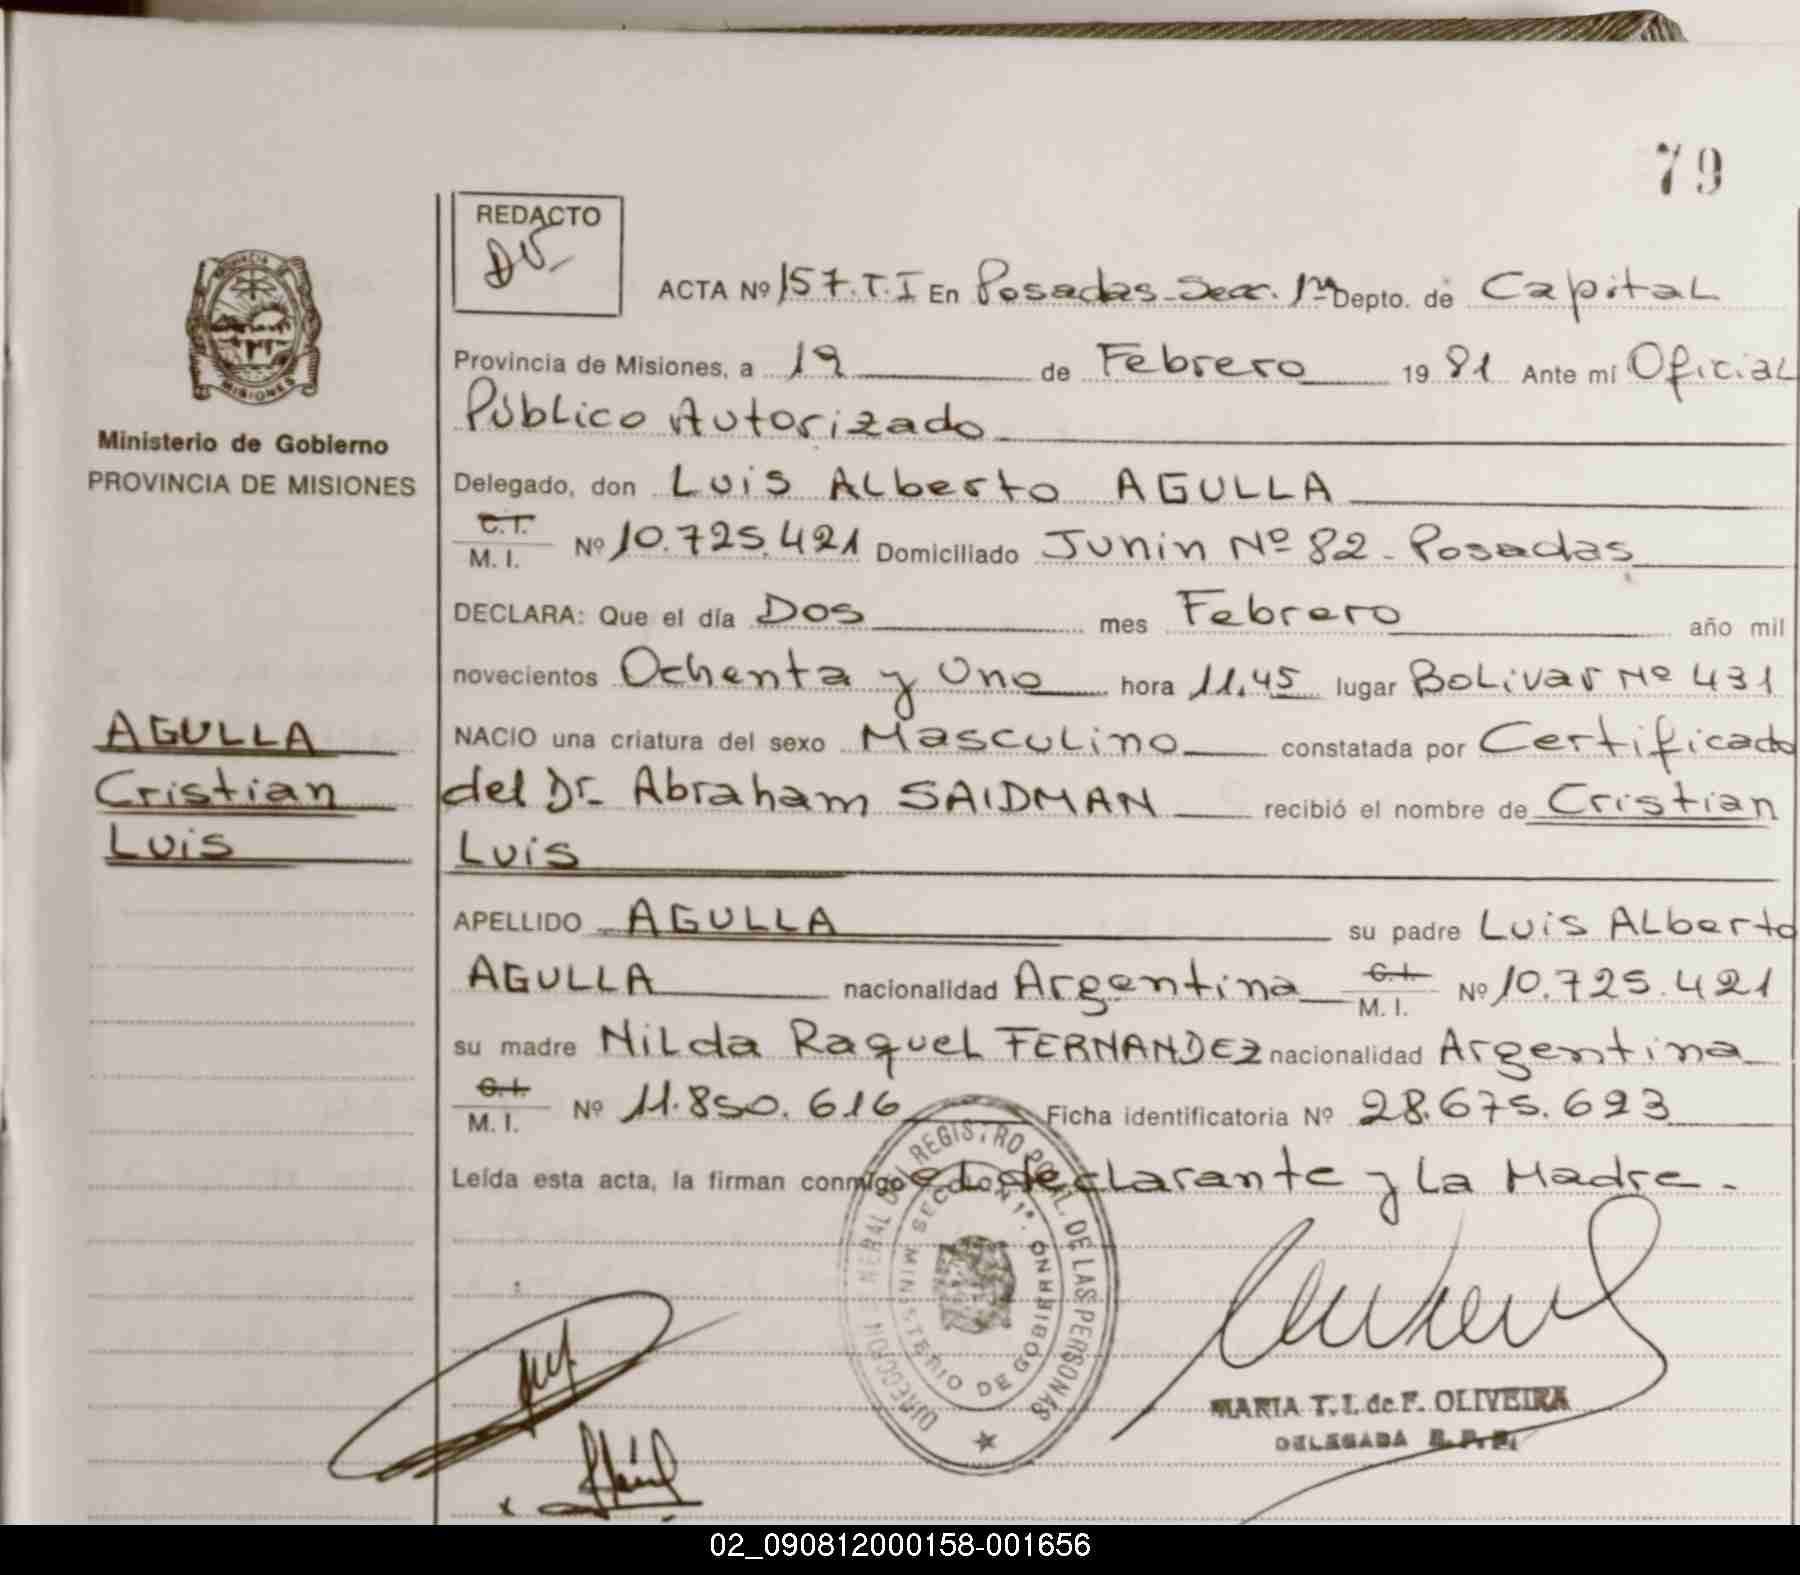 79
REDACTO
ACTA Nº 157.T.I En Posadas-Secc. 1ra Depto. de Capital
Provincia de Misiones, a 19 de Febrero 1981 Ante mí Oficial
Público Autorizado
Delegado, don Luis Alberto AGULLA
C.I. M. I. Nº 10.725.421 Domiciliado Junin Nº 82 - Posadas
DECLARA: Que el día Dos mes Febrero año mil
novecientos Ochenta y Uno hora 11,45 lugar Bolivar Nº 431
NACIO una criatura del sexo Masculino constatada por Certificado
del Dr. Abraham SAIDMAN recibió el nombre de Cristian
Luis
APELLIDO AGULLA su padre Luis Alberto
AGULLA nacionalidad Argentina C.I. M. I. Nº 10.725.421
su madre Nilda Raquel FERNANDEZ nacionalidad Argentina
C.I. M. I. Nº 11.850.616 Ficha identificatoria Nº 28.675.623
Leída esta acta, la firman conmigo el declarante y La Madre.-
PROVINCIA DE
MISIONES
Ministerio de Gobierno
PROVINCIA DE MISIONES
AGULLA
Cristian
Luis
DIRECCION GENERAL DEL REGISTRO PCIAL. DE LAS PERSONAS
SECCION 1ª.
MINISTERIO DE GOBIERNO
MARIA T. I. de F. OLIVEIRA
DELEGADA R. P. P.
02_090812000158-001656